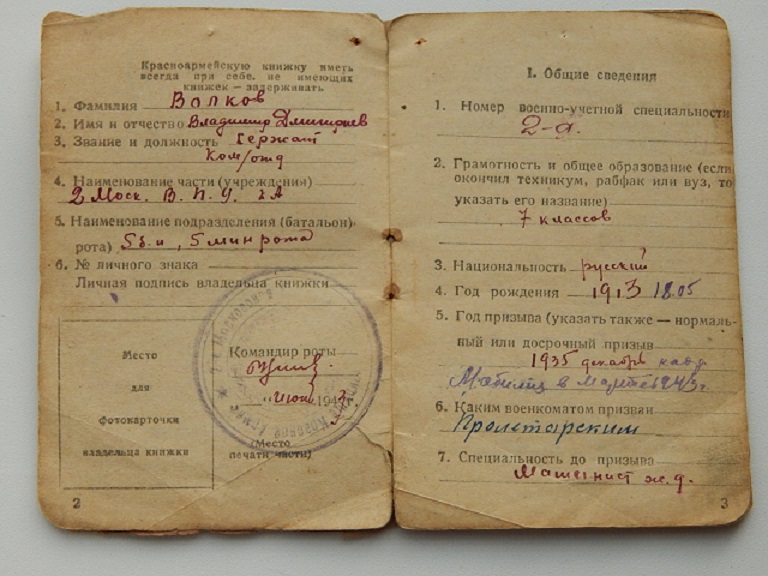 Красноармейскую книжку иметь
всегда при себе. не имеющих
книжек — задерживать
1. Фамилия Волков
2. Имя и отчество Владимир
3. Звание и должность Сержант
Ком/отд
4. Наименование части (учреждения)
2 Моск. В. П. У.
5. Наименование подразделения (батальон)
рота) 5 б-н, 5 мин рота
6. № личного знака
Личная подпись владельца книжки
Место
для
фотокарточки
владельца книжки
Командир роты
"июн 1943 г.
(Место
печати части)
2
I. Общие сведения
1. Номер военно-учетной специальности
2-а.
2. Грамотность и общее образование (если
окончил техникум, рабфак или вуз, то
указать его название)
7 классов
3. Национальность русский
4. Год рождения 1913 18.05
5. Год призыва (указать также — нормаль-
ный или досрочный призыв
1935 декабрь
Мобилиз в марте 1943 г
6. Каким военкоматом призван
Пролетарским
7. Специальность до призыва
Машинист ж. д.
3